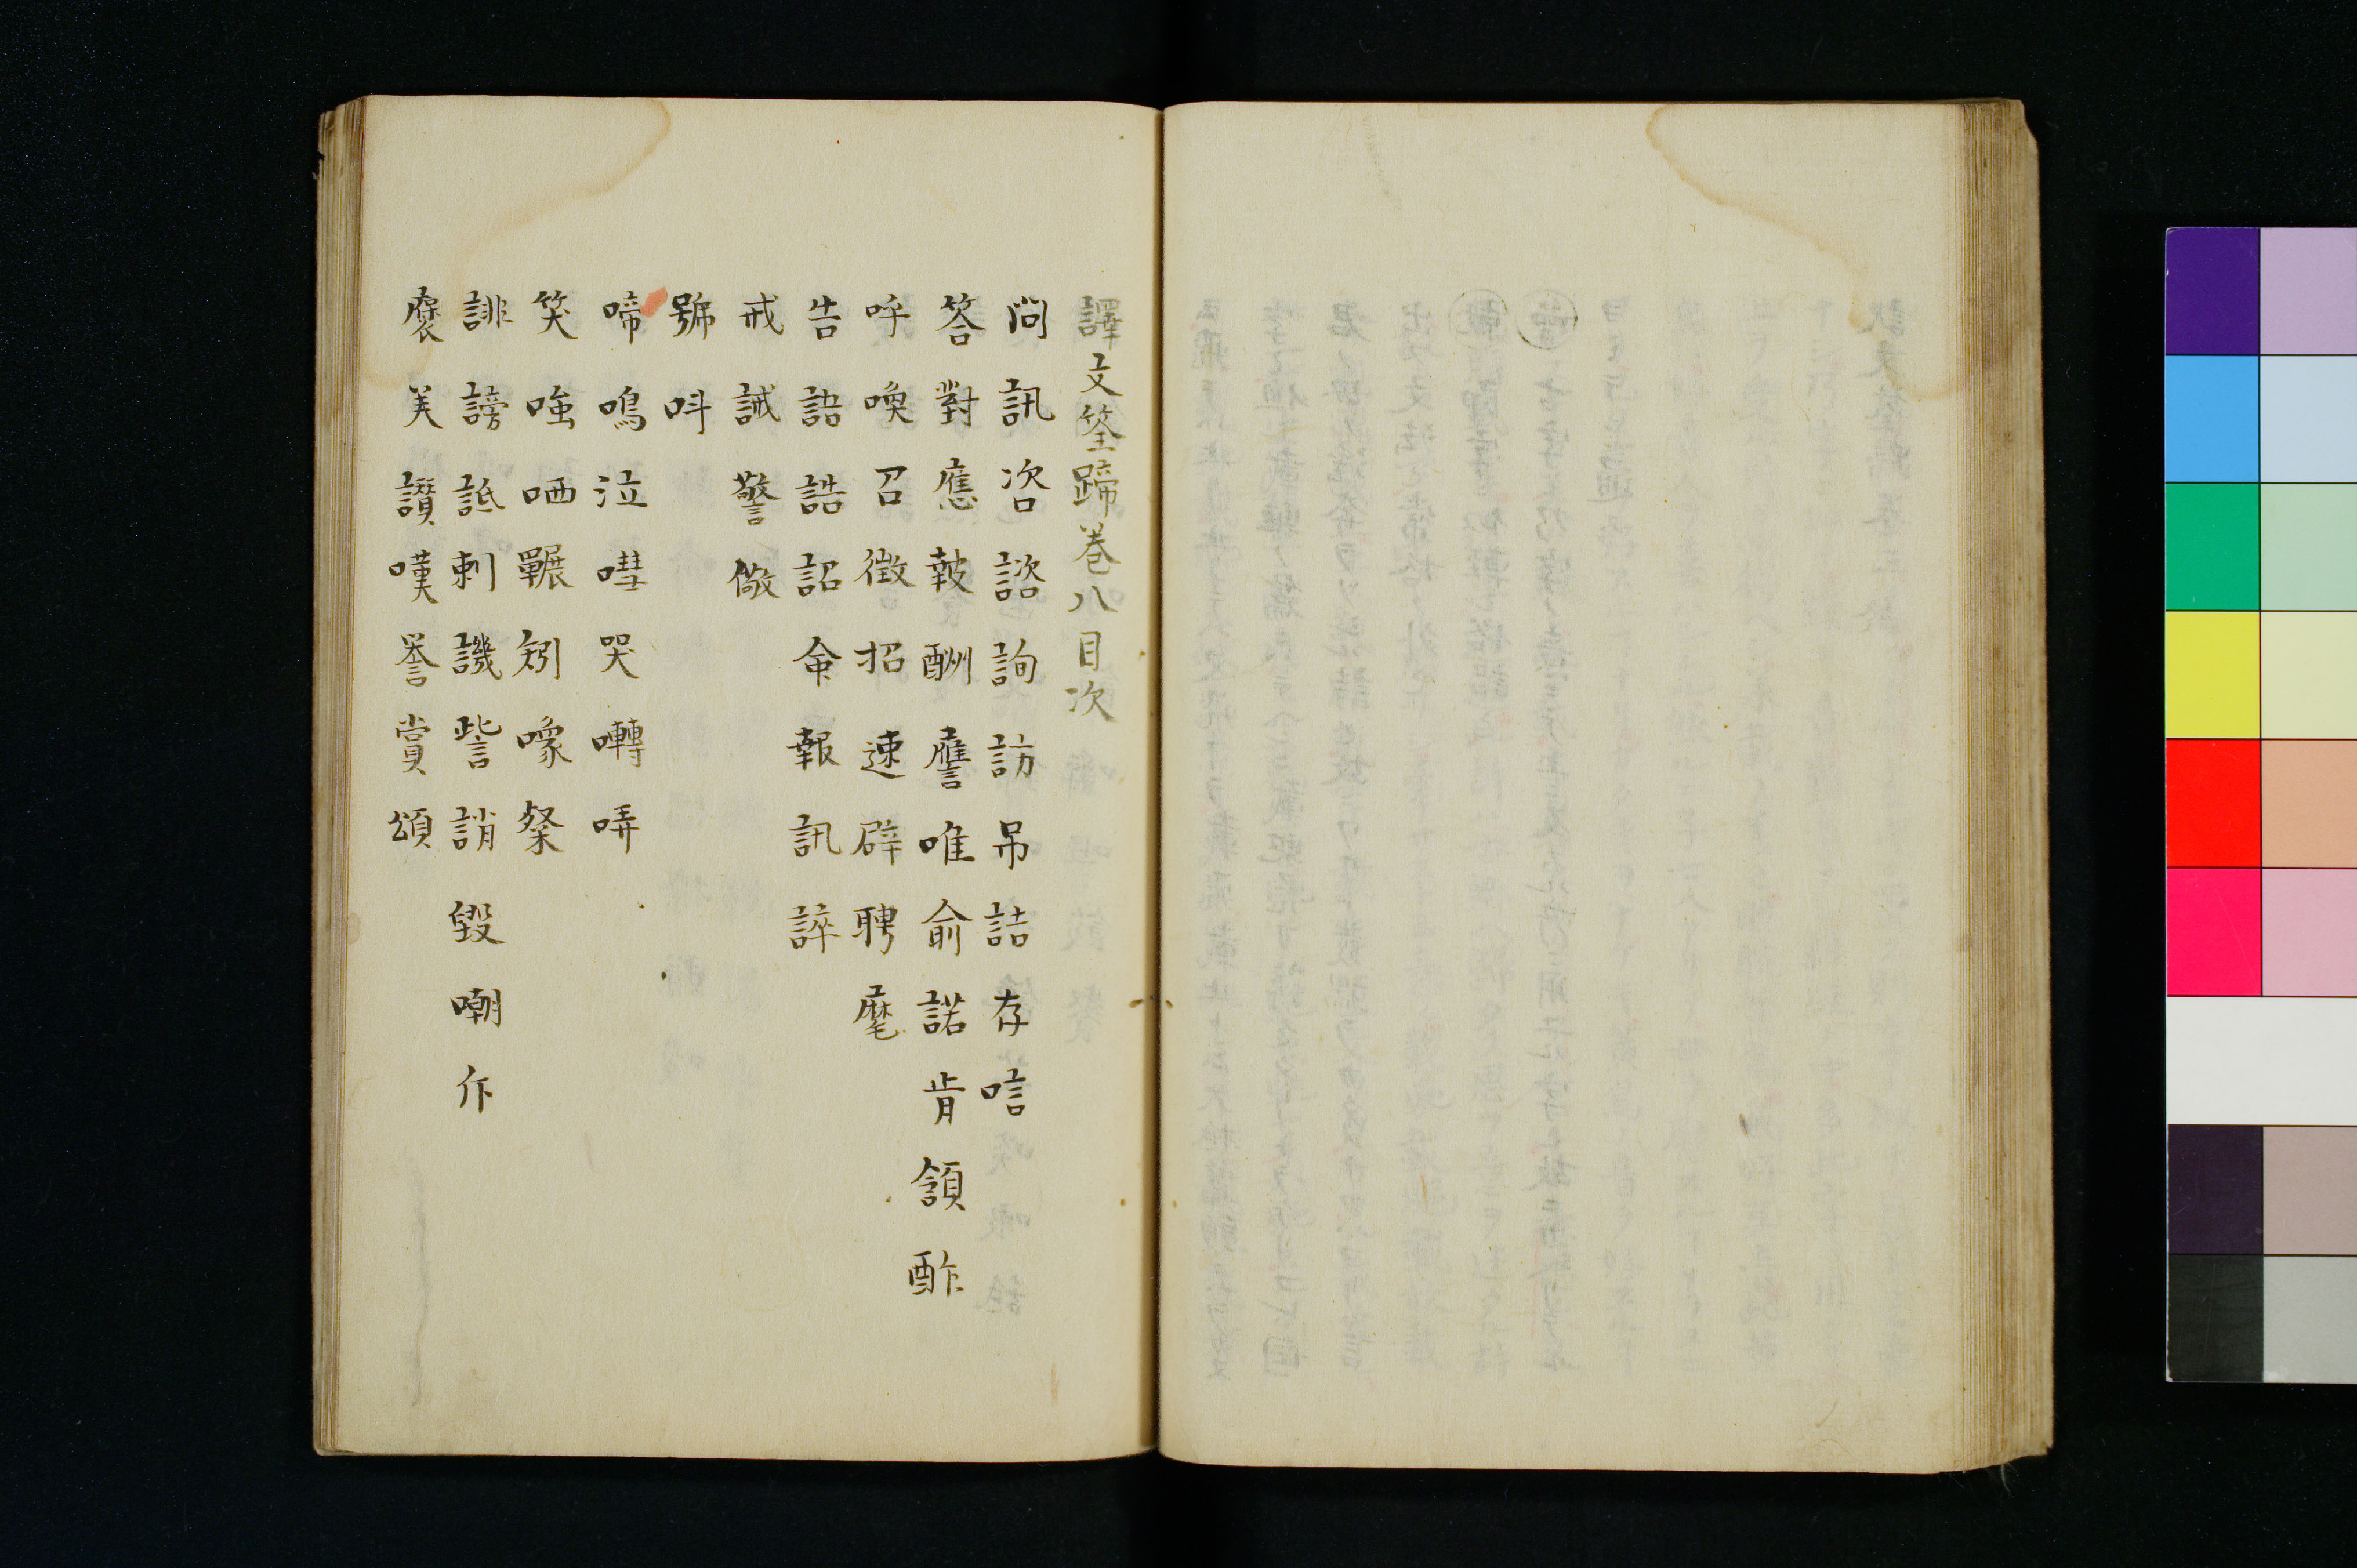 譯文筌蹄巻八目次
問訊咨諮詢訪吊詰存唁
答對應敼酬譍唯俞諾肯頷酢
呼喚召徴招速辟聘麾
告語誥詔命報訊誶
戒誡警儆
號呌
啼鳴泣嘒哭囀哢
笑㗛哂囅矧噱粲
誹謗詆刺譏訾誚毀嘲斥
褒美讃嘆誉賞頌